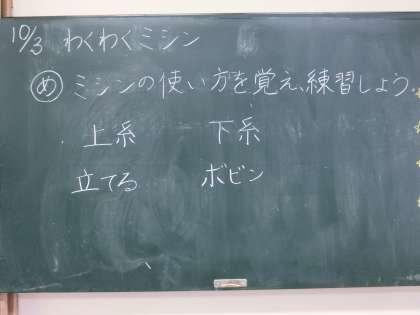 10/3 わくわくミシン
め ミシンの使い方を覚え、練習しよう。
上糸 下糸
立てる ボビン